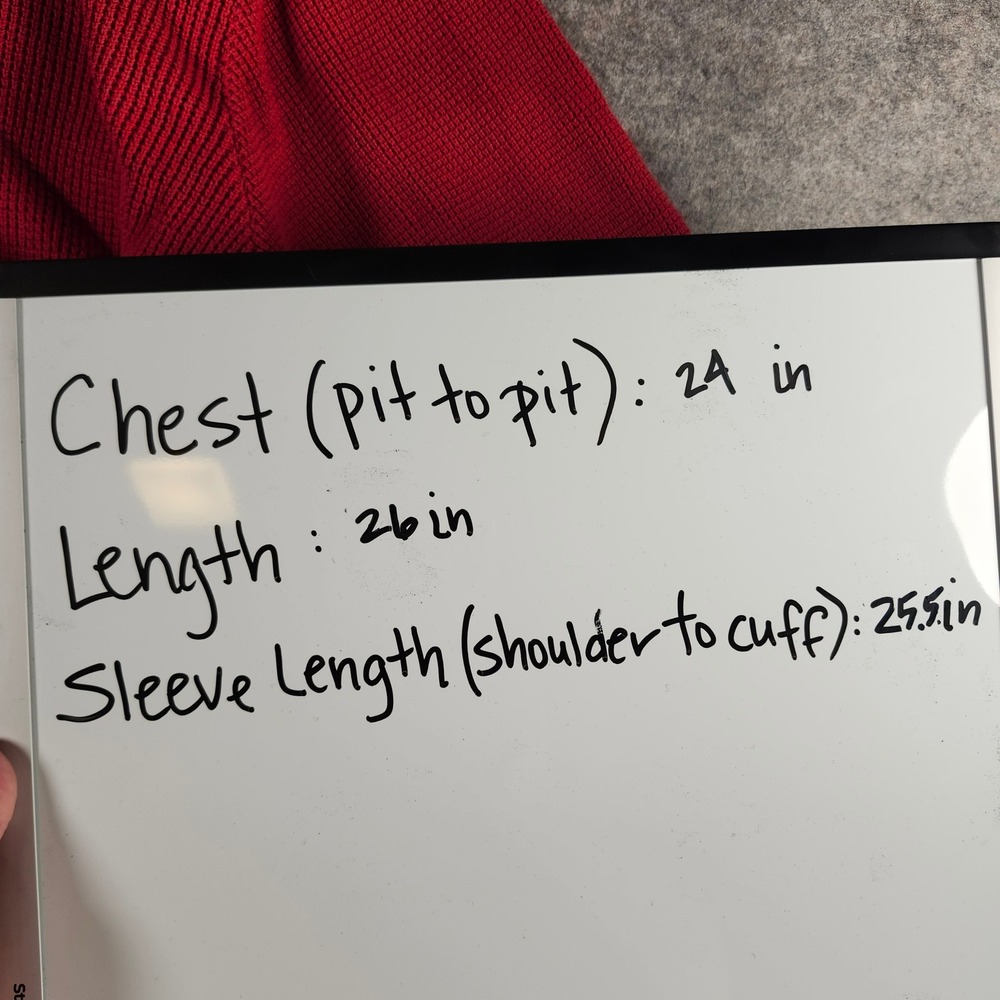 Chest (pit to pit): 24 in
Length: 26 in
Sleeve Length (shoulder to cuff): 25.5 in
St